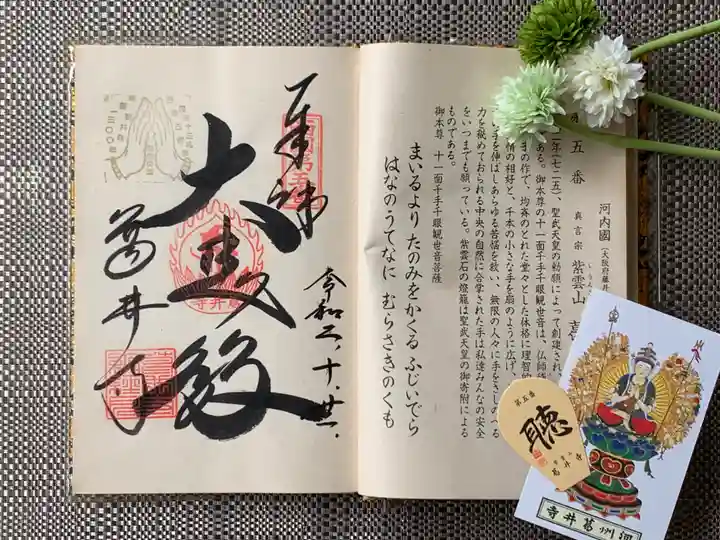 奉拝
大悲殿
葛井寺
令和二、十、廿一、
一三〇〇年
五番
河内國
真言宗 紫雲山
二年(七二五)、聖武天皇の勅願によって創建され
ある。御本尊の十一面千手千眼観世音は、仏師
の作で、均斉のとれた堂々とした体格に理智的
情の相好と、千本の小さな手を扇のように広げ、
手を伸ばしあらゆる苦悩を救い、無限の人々に手をさしのべる
力を秘めておられる中央の自然に合掌された手は私達みんなの安全
をいつまでも願っている。紫雲石の燈籠は聖武天皇の御寄附による
ものである。
御本尊 十一面千手千眼観世音菩薩
まいるより たのみをかくる ふじいでら
はなのうてなに むらさきのくも
第五番
聴
葛井寺
寺井葛州河